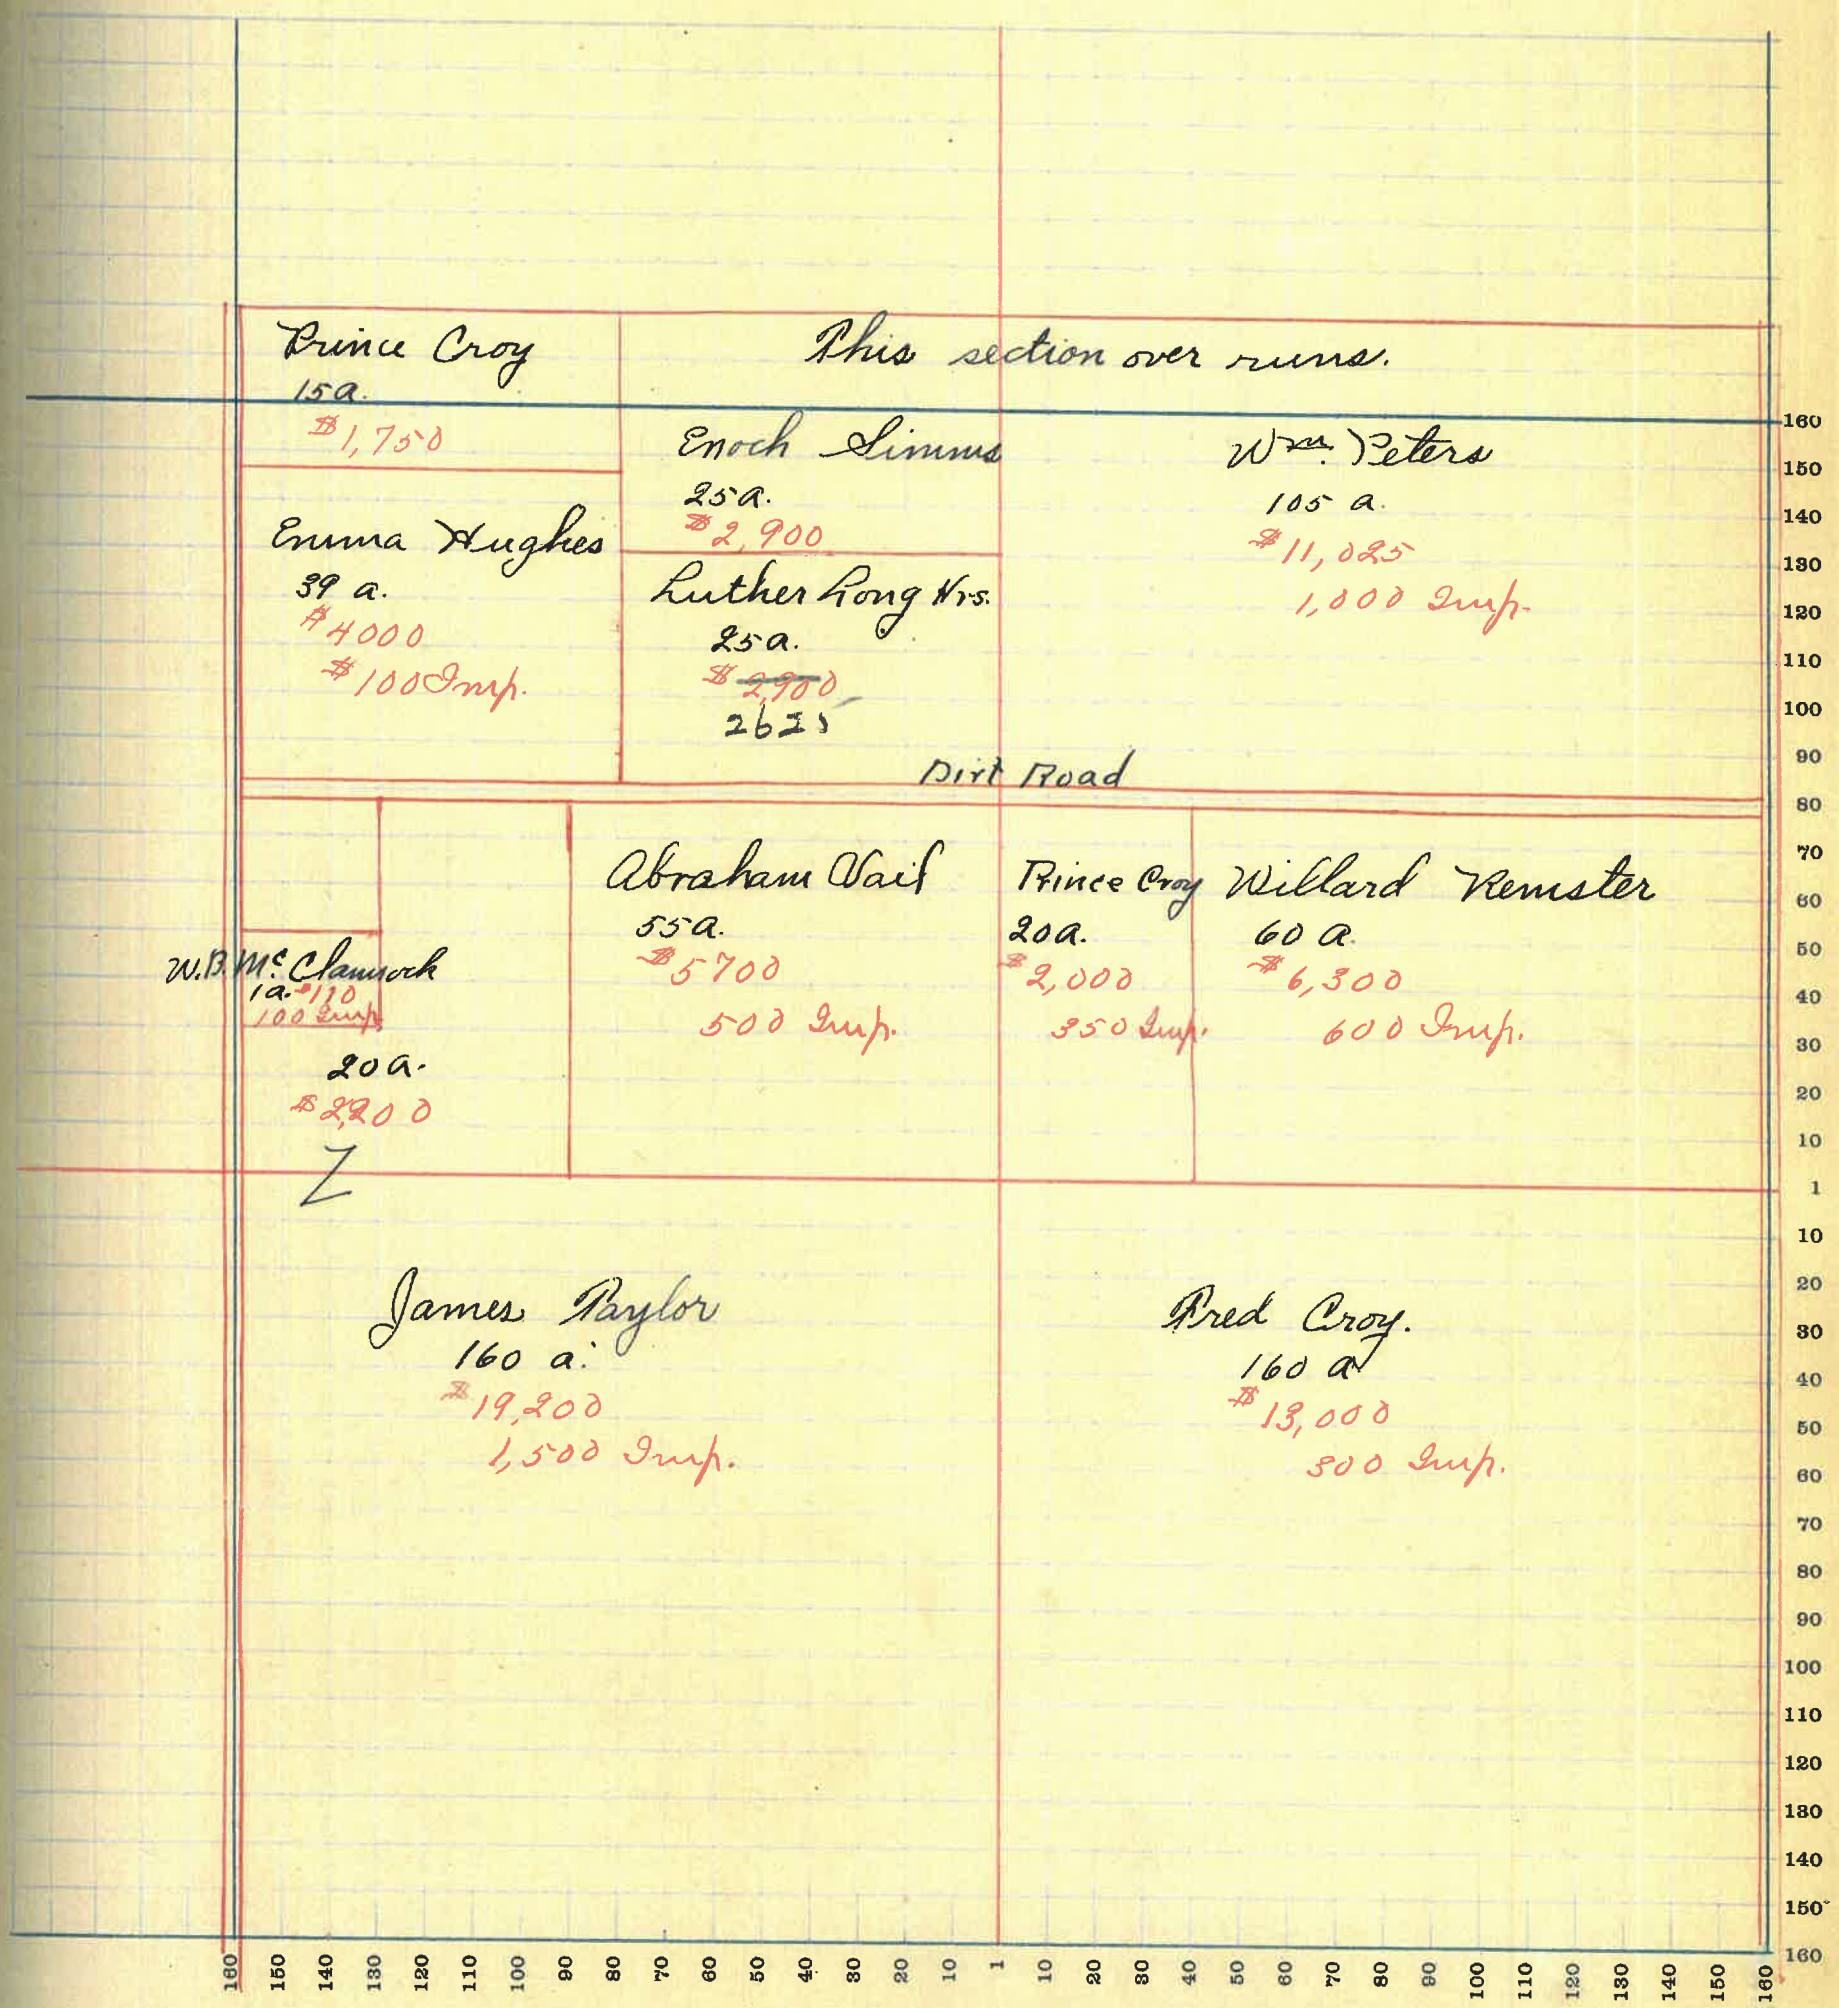 Prince Croy
15a.
$1,750
This section over runs.
Enoch Simms
25a.
$2,900
Wm. Peters
105 a.
$11,025
1,000 Imp.
Emma Hughes
39 a.
$4000
$100 Imp.
Luther Long Hrs.
25a.
$2,900
2625
Dirt Road
W.B. Mc Clamrock
1a. $110
100 Imp.
20a.
$2,200
Z
Abraham Vail
55a.
$5700
500 Imp.
Prince Croy
20a.
$2,000
350 Imp.
Willard Kemster
60 a.
$6,300
600 Imp.
James Taylor
160 a.
$19,200
1,500 Imp.
Fred Croy.
160 a
$13,000
300 Imp.
160
150
140
130
120
110
100
90
80
70
60
50
40
30
20
10
1
10
20
30
40
50
60
70
80
90
100
110
120
130
140
150
160
160 150 140 130 120 110 100 90 80 70 60 50 40 30 20 10 1 10 20 30 40 50 60 70 80 90 100 110 120 130 140 150 160